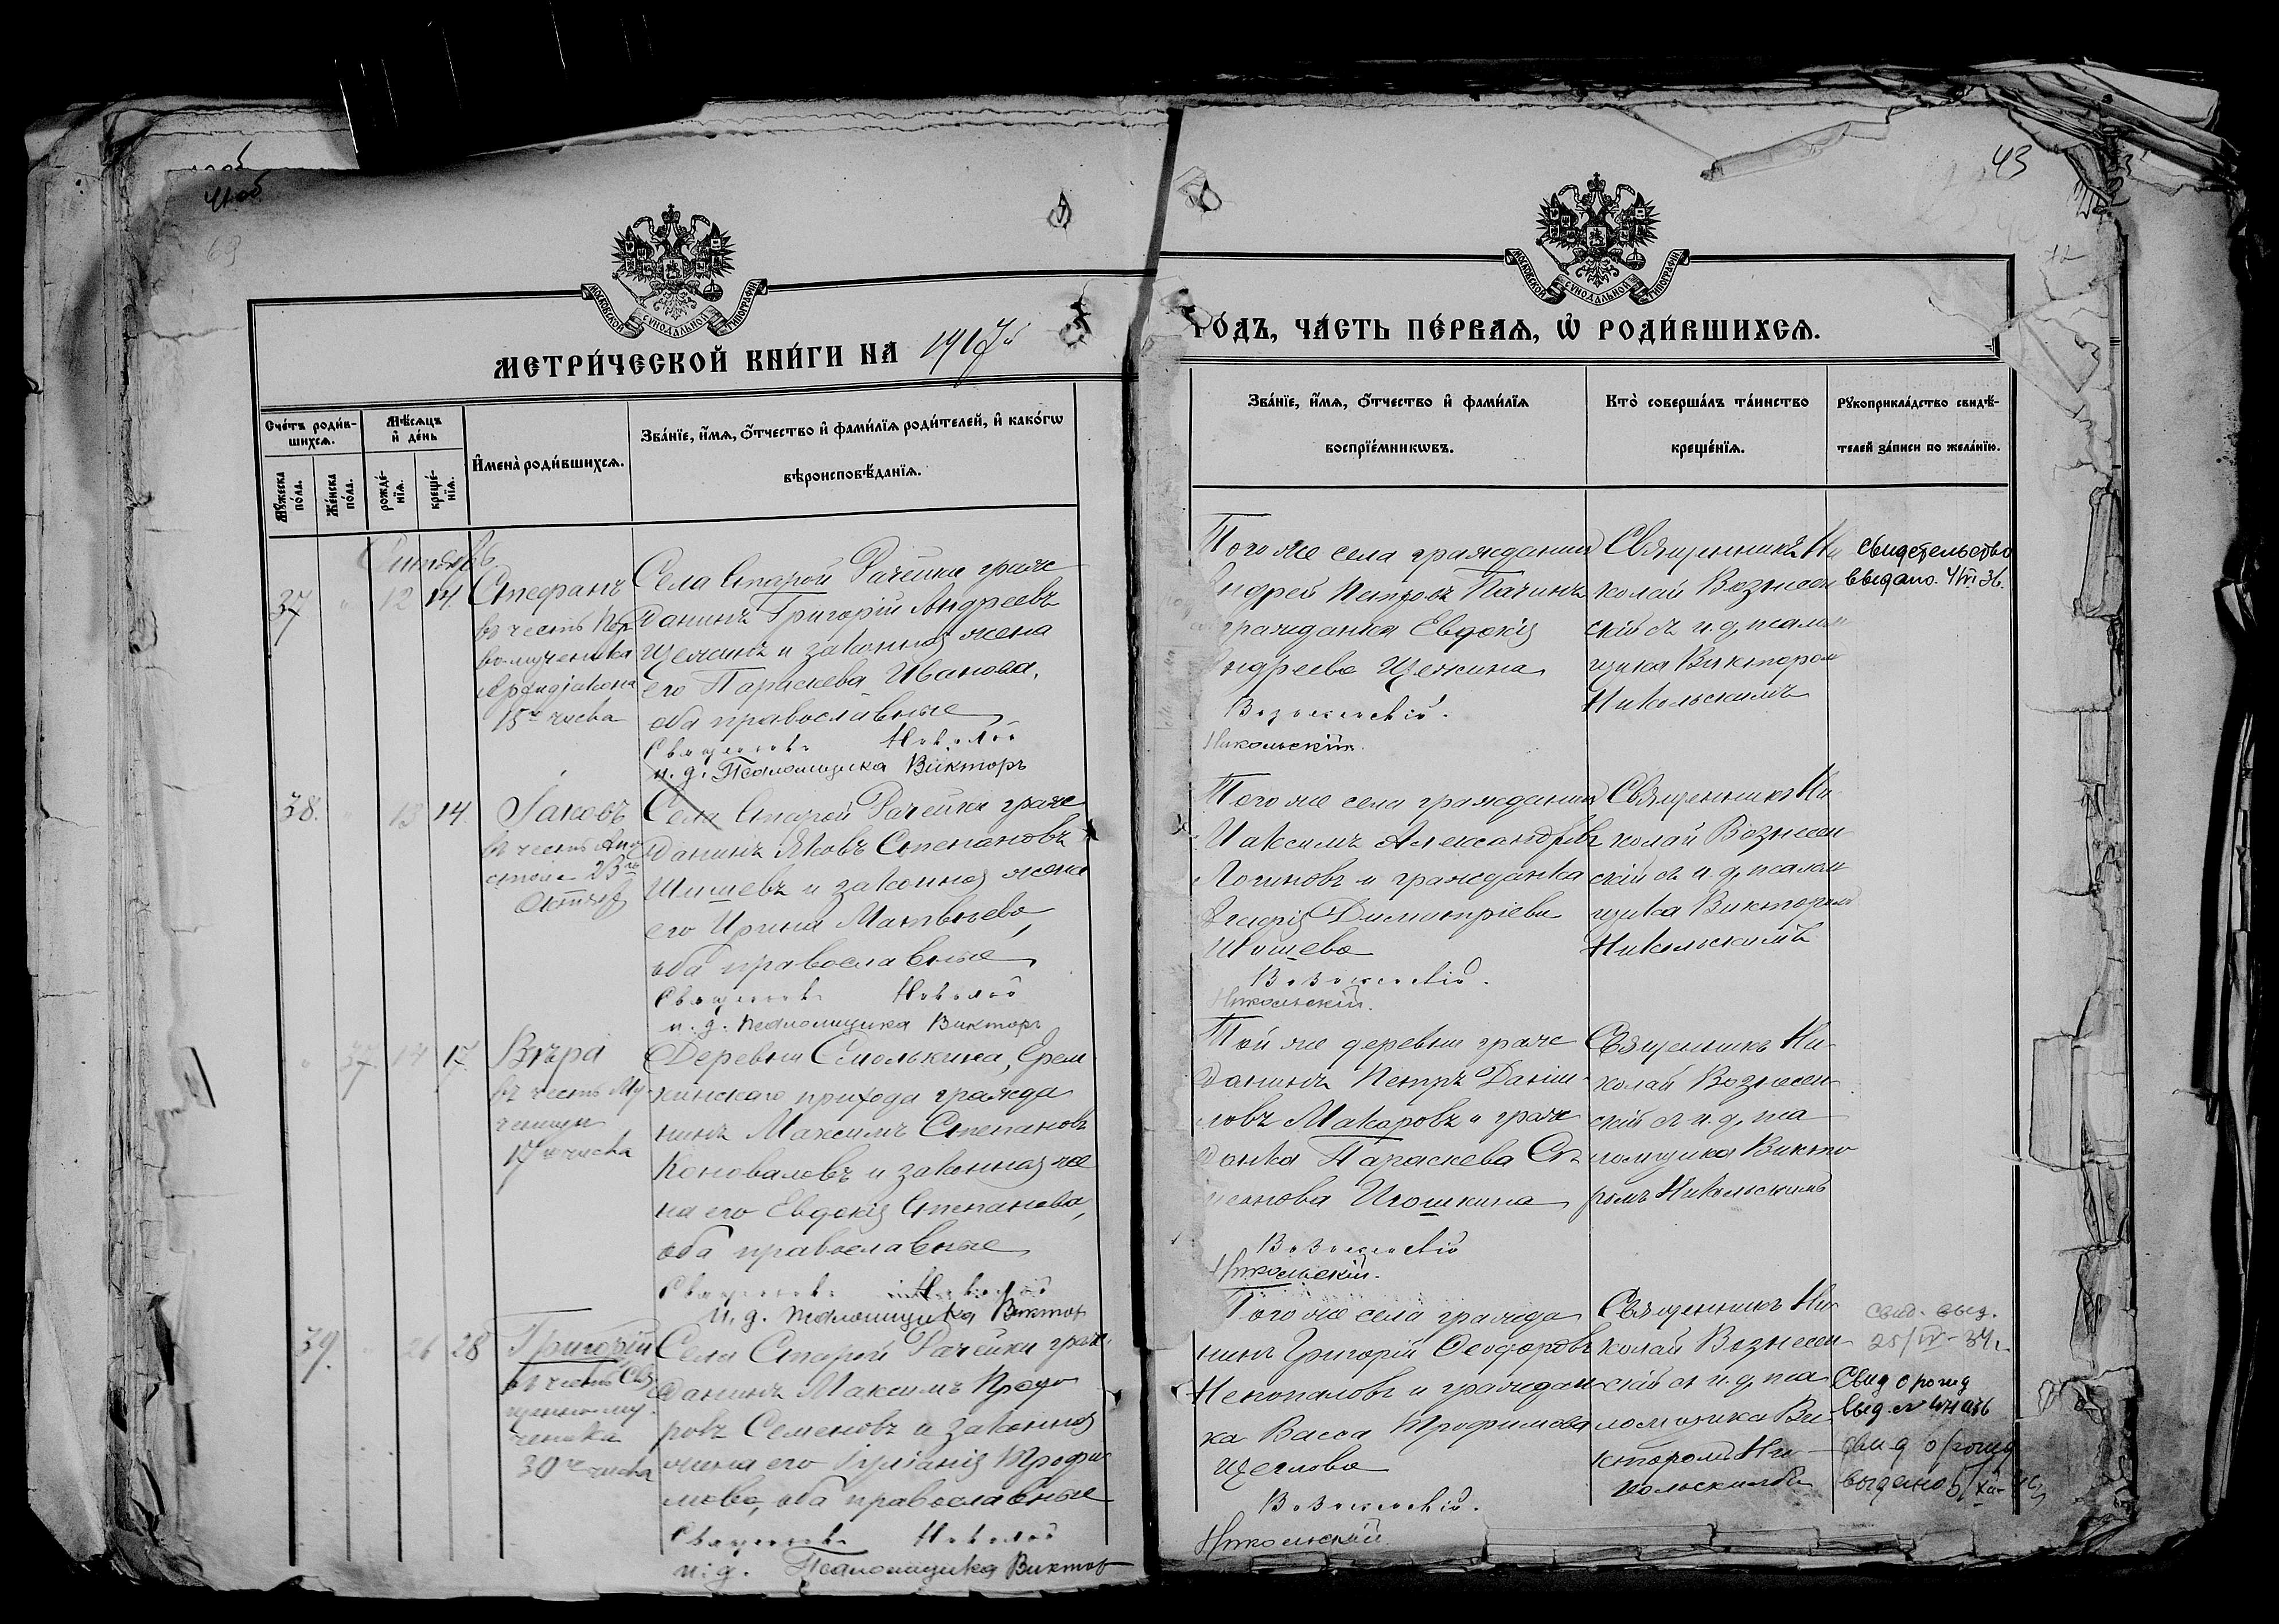 41об
63
43
12
МОСКОВСКОЙ СѴНОДАЛЬНОЙ ТИПОГРАФІИ
МОСКОВСКОЙ СѴНОДАЛЬНОЙ ТИПОГРАФІИ
МЕТРИ́ЧЕСКОЙ КНИ́ГИ НА 1917й
ГО́ДЪ, ЧА́СТЬ ПЕ́РВАЯ, Ѽ РОДИ́ВШИХСЯ.
Сче́тъ роди́в-
шихся.
Мѣ́сяцъ
и҆ де́нь
Мꙋ́жеска по́ла.
Же́нска по́ла.
рожде́-
нїя.
креще́-
нїя.
И҆мена̀ роди́вшихся.
Зва́нїе, и҆́мя, ѻ҆́тчество и҆ фами́лїя роди́телей, и҆ како́гѡ
вѣроисповѣ́данїя.
Зва́нїе, и҆́мя, ѻ҆́тчество и҆ фами́лїя
воспрїе́мникѡвъ.
Кто̀ соверша́лъ та́инство
креще́нїя.
Рꙋкоприкла́дство свидѣ́-
телей за́писи по жела́нїю.
37
12
14
Стефанъ
въ честь Пер
вомученика
Архидіакона
15го числа
Села Старой Рачейки граж
данинъ Григорій Андреевъ
Щежинъ и законная жена
его Параскева Иванова,
оба православные
Священникъ Николай
и. д. Псаломщика Викторъ
Того же села гражданинъ
Андрей Петровъ Пачинъ
гражданка Евдокія
Андреева Щежина
Вознесенскій.
Никольскій.
Священникъ Ни
колай Вознесен
скій съ и. д. псалом
щика Викторомъ
Никольскимъ
свидетельство
выдано. 4/VI 36.
38.
13
14.
Іаковъ
въ честь Апо
стола 23го
Октября
Села Старой Рачейки граж
данинъ Яковъ Степановъ
Шишевъ и законная жена
его Ирина Матвѣева,
оба православные
Священникъ Николай
и. д. псаломщика Викторъ
Того же села гражданинъ
Максимъ Александровъ
Логиновъ и гражданка
Димитріева
Шишева
Вознесенскій.
Никольскій.
Священникъ Ни-
колай Вознесен
скій съ и. д. псалом
щика Викторомъ
Никольскимъ
37
17
Вѣра
въ честь Му-
ченицы
17го числа
Деревни Смолькина, Ерем
кинскаго прихода гражда
нинъ Максимъ Степановъ
Коноваловъ и законная же
на его Евдокія Степанова,
оба православные
Священникъ Николай
и. д. псаломщика Виктор
Той же деревни граж
данинъ Петръ Даніи-
ловъ Макаровъ и граж
данка Параскева Сте
панова Игошкина
Вознесенскій
Никольскій.
Священникъ Ни-
колай Вознесен-
скій съ и. д. пса
ломщика Викто
ромъ Никольскимъ
39.
26
28
Григорій
въ честь Свя
щенному
ченика
30го числа
Села Старой Рачейки граж
данинъ Максимъ
ровъ Семеновъ и законная
жена его Іуліанія Трофи
мова, оба православные
Священникъ Николай
и. д. Псаломщика Виктор
Того же села гражда
нинъ Григорій Ѳеодоровъ
Непопаловъ и граждан
ка Васса Трофимова
Щеглова
Вознесенскій.
Никольскій.
Священникъ Ни-
колай Вознесен-
скій съ и. д. пса
ломщика Ви-
кторомъ Ни
кольскимъ
свид. выд.
25/IV-34г.
Свид о рожд
выд.
свид о рожд
выдано